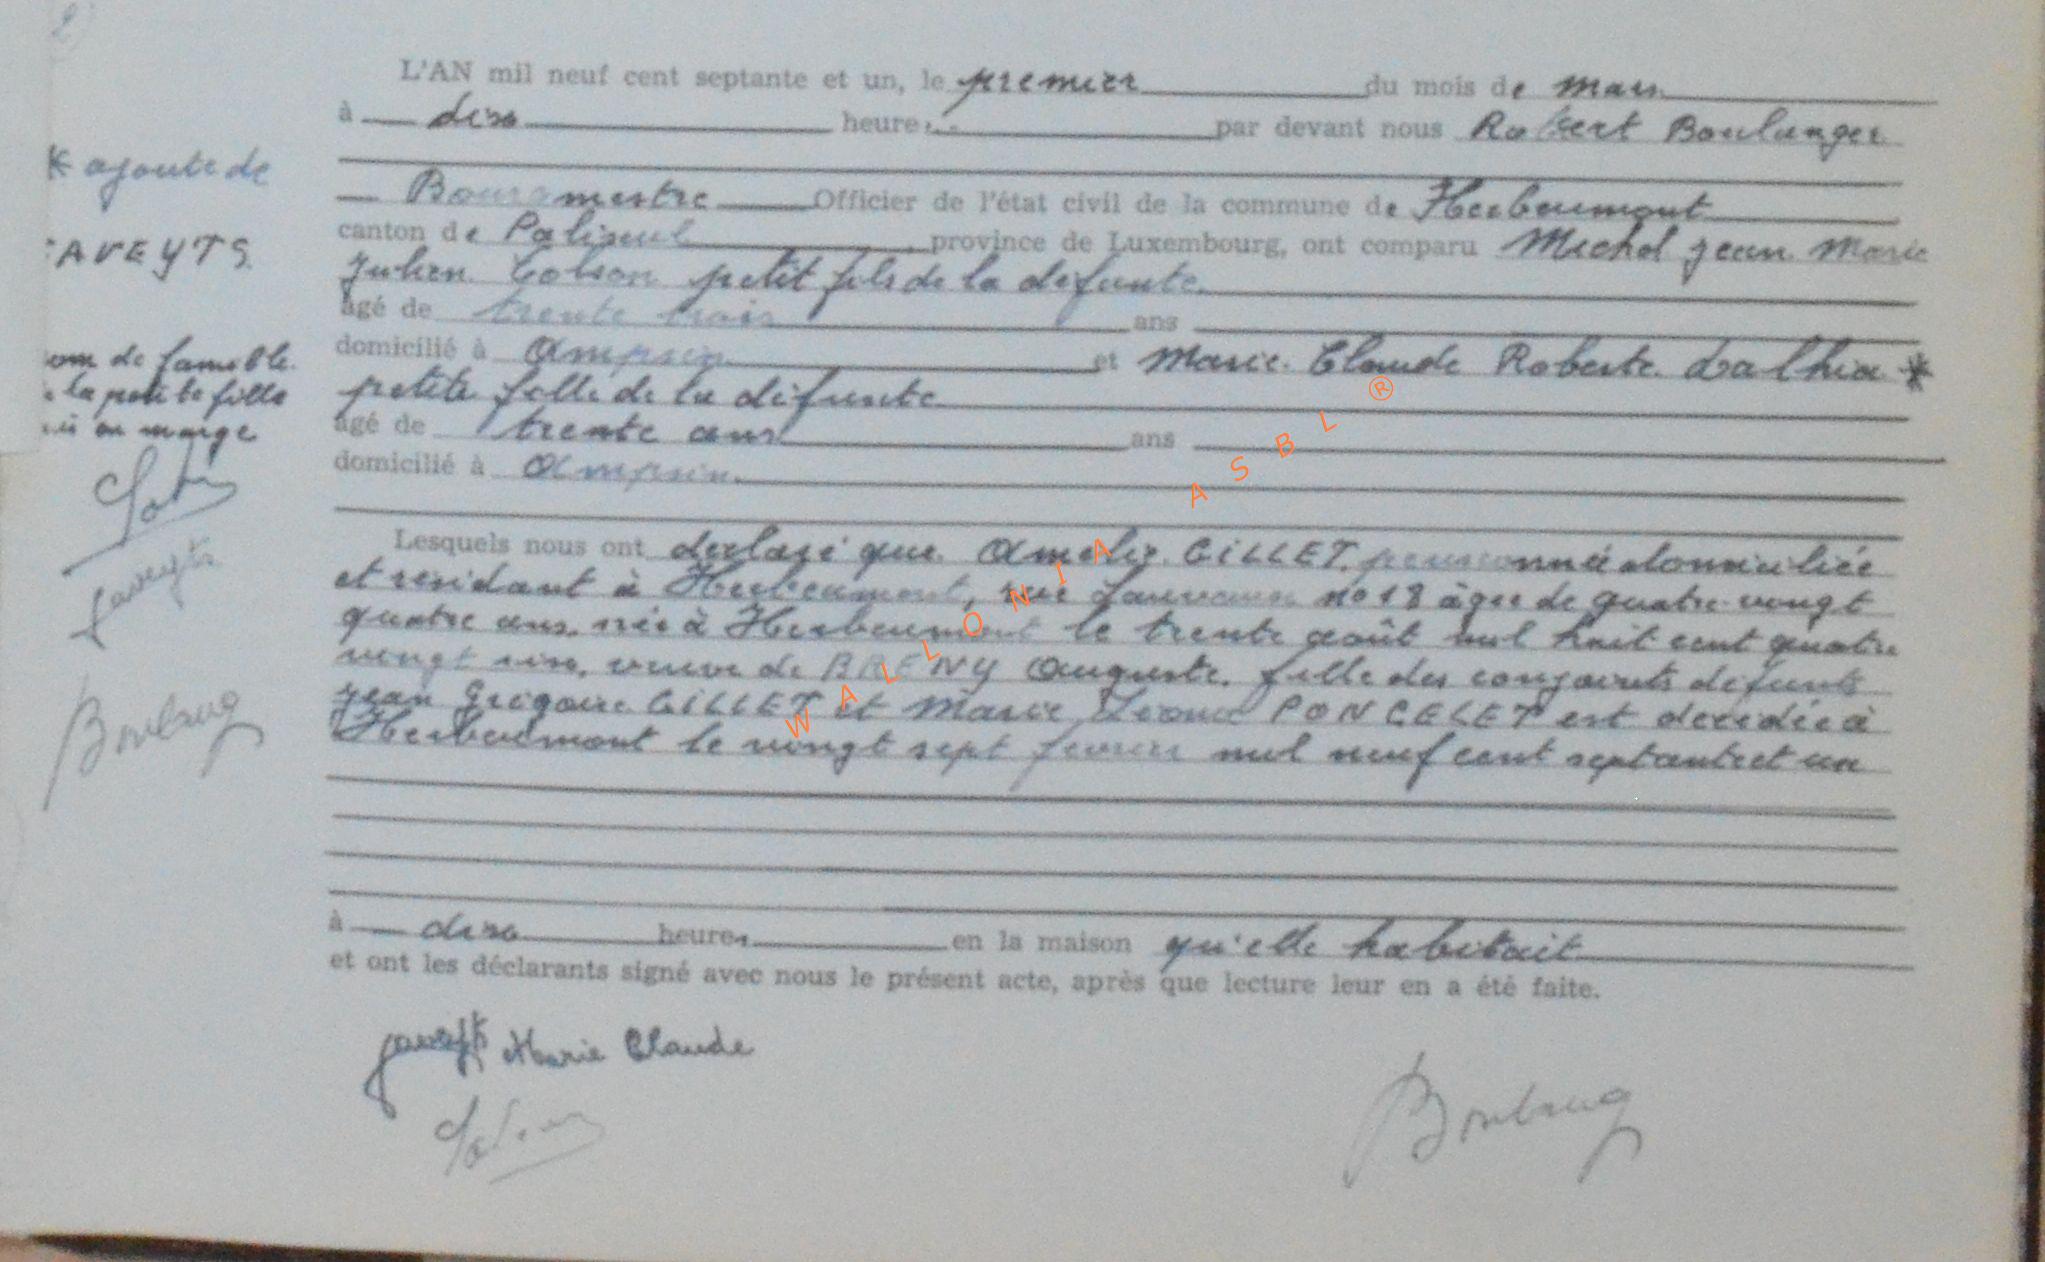 L'AN mil neuf cent septante et un, le premier du mois de mars
à dix heures par devant nous Robert Boulanger
Bourgmestre Officier de l'état civil de la commune de Herbeumont
canton de Paliseul province de Luxembourg, ont comparu Michel Jean Marie
Julien Colson petit fils de la défunte
âgé de trente trois ans
domicilié à Ampsin et Marie Claude Roberte Dalhia *
petite fille de la défunte
âgé de trente ans ans
domicilié à Ampsin
Lesquels nous ont déclaré que Amelie GILLET, pensionnée domiciliée
et résidant à Herbeumont, rue no 18 âgée de quatre vingt
quatre ans, née à Herbeumont le trente août mil huit cent quatre
vingt six, veuve de BRENY Auguste, fille des conjoints défunts
Jean Grégoire GILLET et Marie PONCELET est décédée à
Herbeumont le vingt sept février mil neuf cent septante et un
à dix heures en la maison qu'elle habitait
et ont les déclarants signé avec nous le présent acte, après que lecture leur en a été faite.
* ajoute de
AVEYTS
om de famille
la petite fille
en marge
Marie Claude
WALLONIA ASBL ®